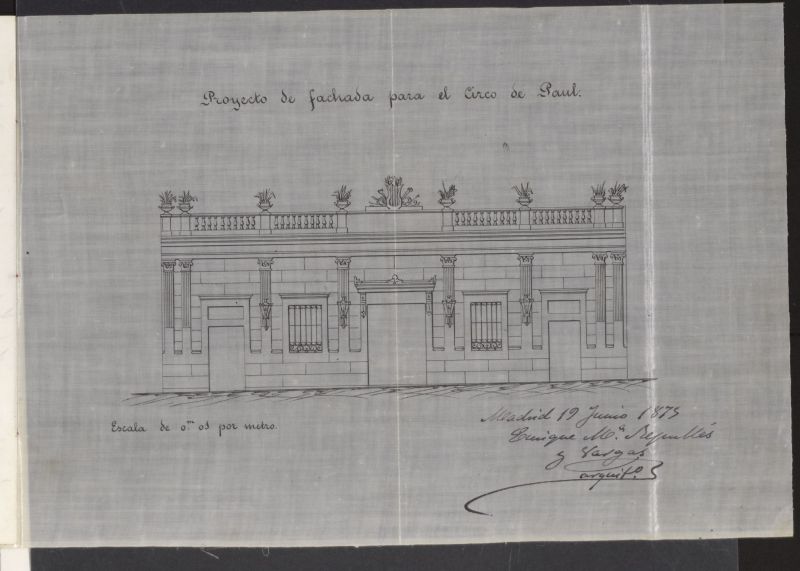 Proyecto de fachada para el Circo de Paul.
Escala de 0,ᵐ 01 por metro.
Madrid 19 Junio 1875
Enrique Mª. Repullés
y Vargas
arquitº.